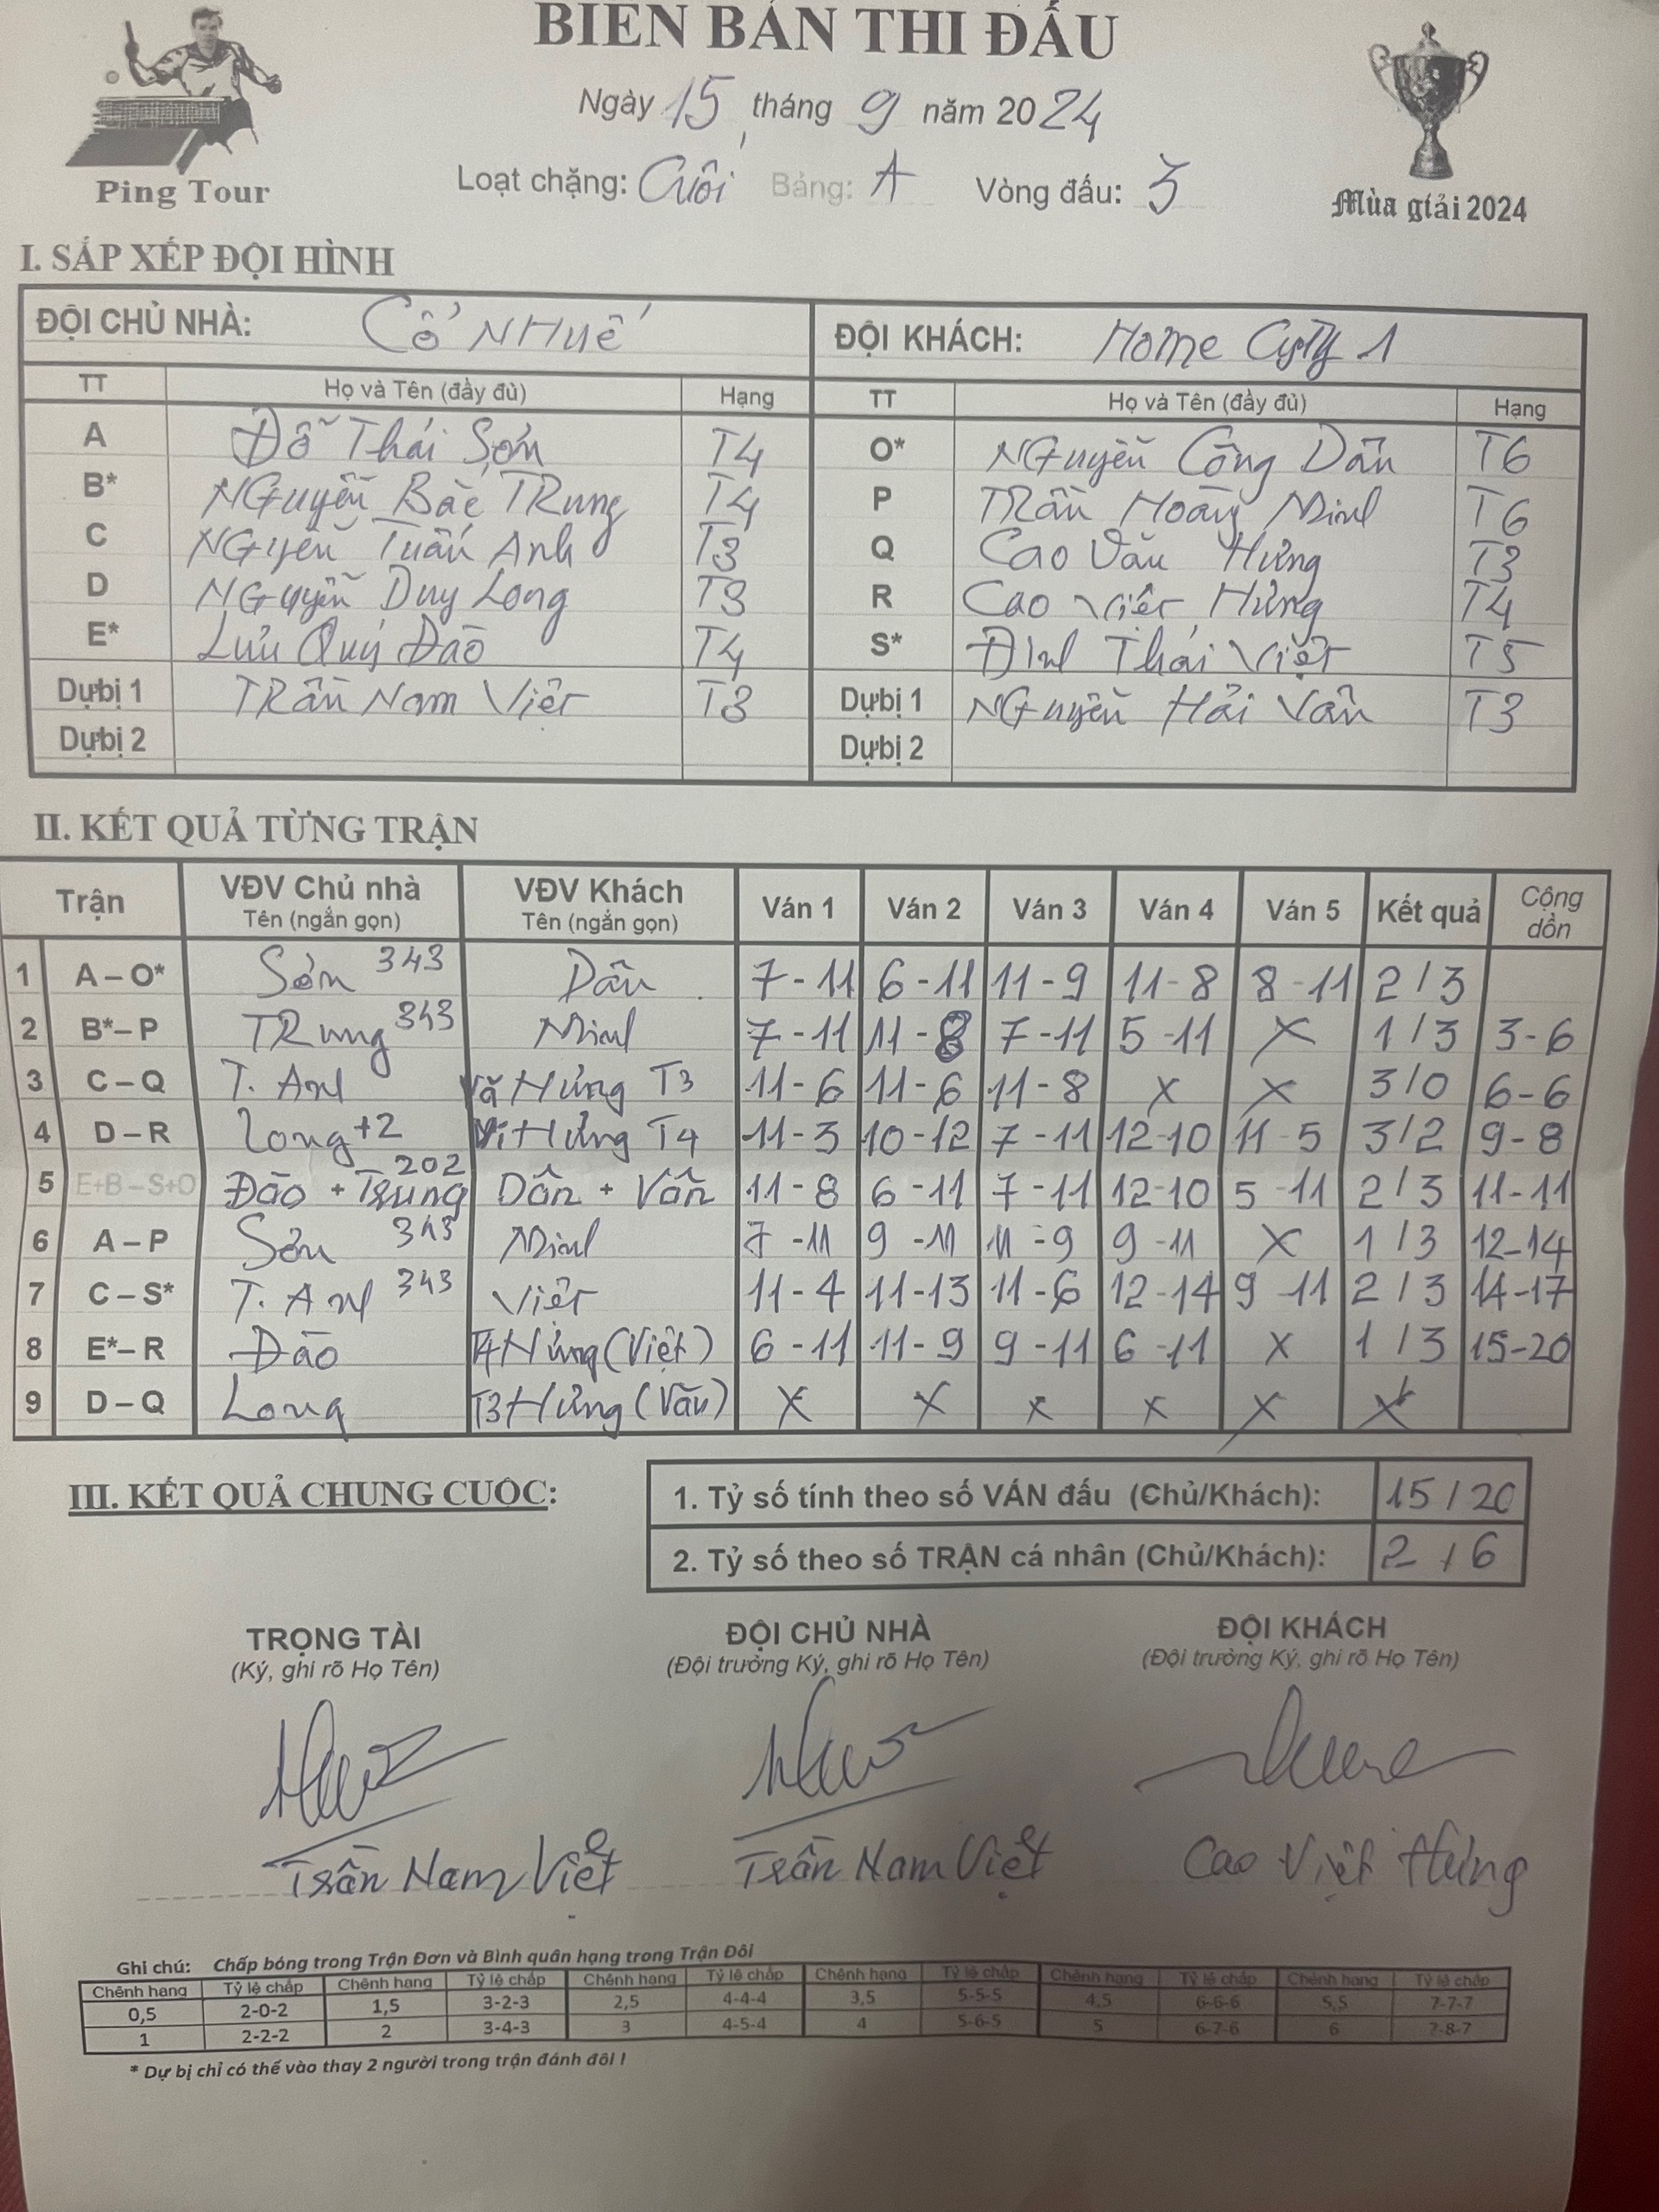 BIÊN BẢN THI ĐẤU
Ngày 15 tháng 9 năm 2024
Loạt chặng: Cuối Bảng: A Vòng đấu: 3
Ping Tour
Mùa giải 2024
I. SẮP XẾP ĐỘI HÌNH
ĐỘI CHỦ NHÀ: Cổ NHuế ĐỘI KHÁCH: Home City 1
TT Họ và Tên (đầy đủ) Hạng TT Họ và Tên (đầy đủ) Hạng
A Đỗ Thái Sơn T4 O* NGuyễn Công Dân T6
B* NGuyễn Bắc TRung T4 P TRần Hoàng Minh T6
C NGuyễn Tuấn Anh T3 Q Cao Văn Hưng T3
D NGuyễn Duy Long T3 R Cao Việt Hưng T4
E* Lưu Quý Đào T4 S* Đinh Thái Việt T5
Dự bị 1 TRần Nam Việt T3 Dự bị 1 NGuyễn Hải Vân T3
Dự bị 2 Dự bị 2
II. KẾT QUẢ TỪNG TRẬN
Trận VĐV Chủ nhà VĐV Khách Ván 1 Ván 2 Ván 3 Ván 4 Ván 5 Kết quả Cộng dồn
Tên (ngắn gọn) Tên (ngắn gọn)
1 A – O* Sơn 343 Dân 7 - 11 6 - 11 11 - 9 11 - 8 8 - 11 2 / 3
2 B* – P TRung 343 Minh 7 - 11 11 - 8 7 - 11 5 - 11 X 1 / 3 3 - 6
3 C – Q T. Anh Vă Hưng T3 11 - 6 11 - 6 11 - 8 X X 3 / 0 6 - 6
4 D – R Long +2 Vi Hưng T4 11 - 3 10 - 12 7 - 11 12 - 10 11 - 5 3 / 2 9 - 8
5 E+B – S+O Đào + Trung 202 Dân + Vân 11 - 8 6 - 11 7 - 11 12 - 10 5 - 11 2 / 3 11 - 11
6 A – P Sơn 343 Minh 7 - 11 9 - 11 11 - 9 9 - 11 X 1 / 3 12 - 14
7 C – S* T. Anh 343 Việt 11 - 4 11 - 13 11 - 6 12 - 14 9 - 11 2 / 3 14 - 17
8 E* – R Đào T4 Hưng (Việt) 6 - 11 11 - 9 9 - 11 6 - 11 X 1 / 3 15 - 20
9 D – Q Long T3 Hưng (Văn) X X X X X X
III. KẾT QUẢ CHUNG CUỘC:
1. Tỷ số tính theo số VÁN đấu (Chủ/Khách): 15 / 20
2. Tỷ số theo số TRẬN cá nhân (Chủ/Khách): 2 / 6
TRỌNG TÀI ĐỘI CHỦ NHÀ ĐỘI KHÁCH
(Ký, ghi rõ Họ Tên) (Đội trưởng Ký, ghi rõ Họ Tên) (Đội trưởng Ký, ghi rõ Họ Tên)
Trần Nam Việt Trần Nam Việt Cao Việt Hưng
Ghi chú: Chấp bóng trong Trận Đơn và Bình quân hạng trong Trận Đôi
Chênh hạng Tỷ lệ chấp Chênh hạng Tỷ lệ chấp Chênh hạng Tỷ lệ chấp Chênh hạng Tỷ lệ chấp Chênh hạng Tỷ lệ chấp Chênh hạng Tỷ lệ chấp
0,5 2-0-2 1,5 3-2-3 2,5 4-4-4 3,5 5-5-5 4,5 6-6-6 5,5 7-7-7
1 2-2-2 2 3-4-3 3 4-5-4 4 5-6-5 5 6-7-6 6 7-8-7
* Dự bị chỉ có thể vào thay 2 người trong trận đánh đôi !